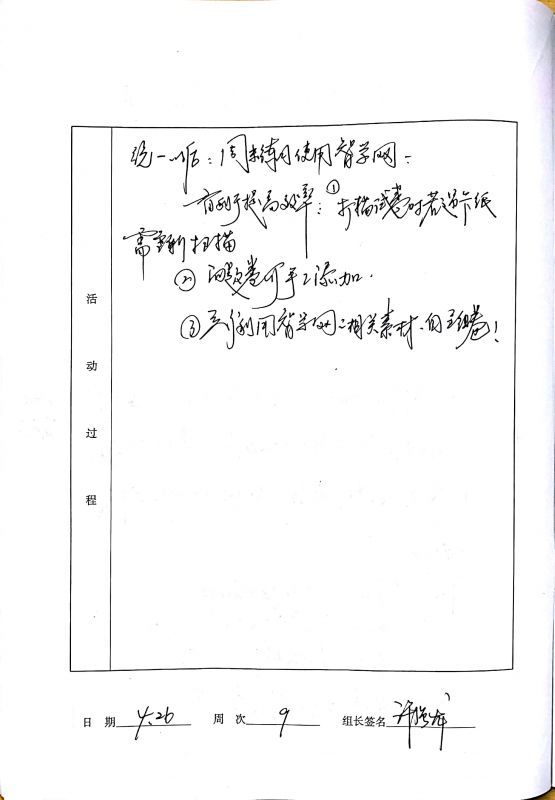 统一听后：周末练习使用智学网：
有利于提高效率：① 扫描试卷时若遇卡纸
需重新扫描
② 问题卷可手工添加.
③ 利用智学网相关素材、自主组卷！
活动过程
日期 4.26 周次 9 组长签名